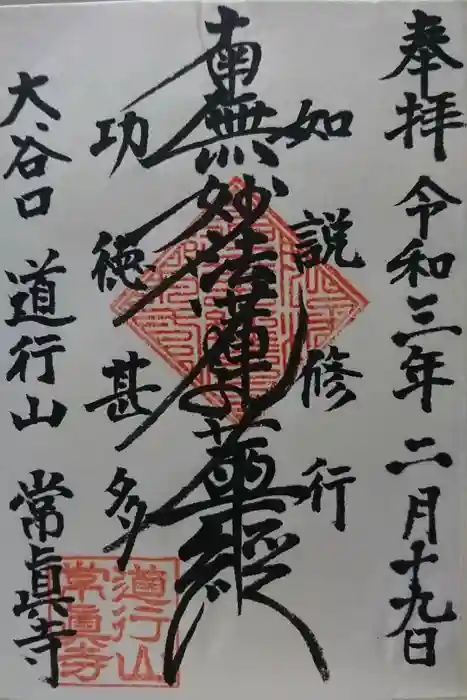 奉拝 令和三年 二月十九日
如説修行
南無妙法蓮華経
功徳甚多
大谷口 道行山 常眞寺
道行山
常眞寺